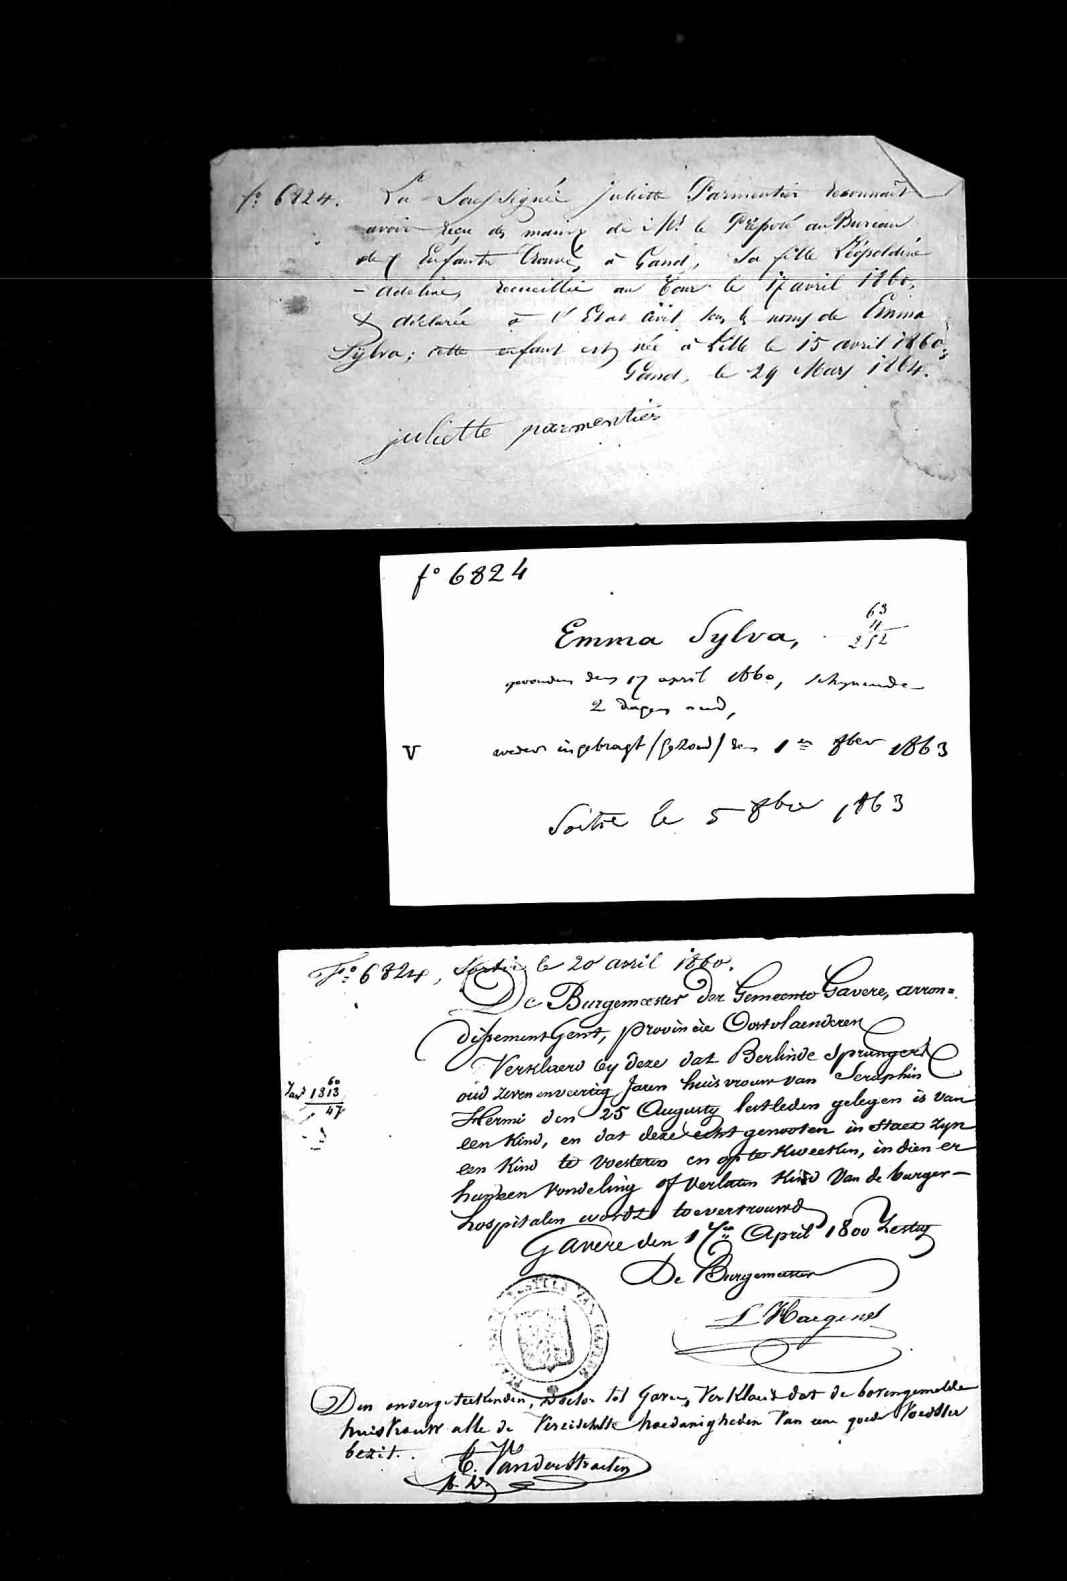 fo 6824. La Soussignée juliette Parmentier reconnaît
avoir reçu des mains de Mr le Préposé au Bureau
des Enfants Trouvés, à Gand, Sa fille Léopoldine
- Adeline, recueillie au Tour le 17 avril 1860,
& déclarée à l'Etat Civil sous les noms de Emma
Sylva; cette enfant est née à Lille le 15 avril 1860;
Gand, le 29 Mars 1864.
juliette parmentier
fo 6824
63
4
252
Emma Sylva,
gevonden den 17 april 1860, schynende
2 dagen oud,
V weder ingebragt (gezond) den 1en 8ber 1863
Sortie le 5 8bre 1863
Fo 6824, Sortie le 20 avril 1860.
De Burgemeester der Gemeente Gavere, arron=
dissement Gent, provincie Oostvlaenderen
Verklaerd by deze dat Berlinde Sprungers
oud zeven en veertig Jaren huisvrouw van Seraphin
60
1813
47
Hermi den 25 Augusty lestleden gelegen is van
een kind, en dat deze echtgenooten in staet zyn
een kind te voesteren en op te kweeken, indien er
hun een vondeling of verlaten kind van de burger-
hospitalen wordt toevertrouwd
Gavere den 17en April 1800 Zestig
De Burgemeester
Den ondergeteekenden, Doctor tot Gavere, Verklaerd dat de bovengemelde
huisvrouw alle de Vereischte hoedanigheden van een goede Voedster
bezit.
C. Vanderstraeten